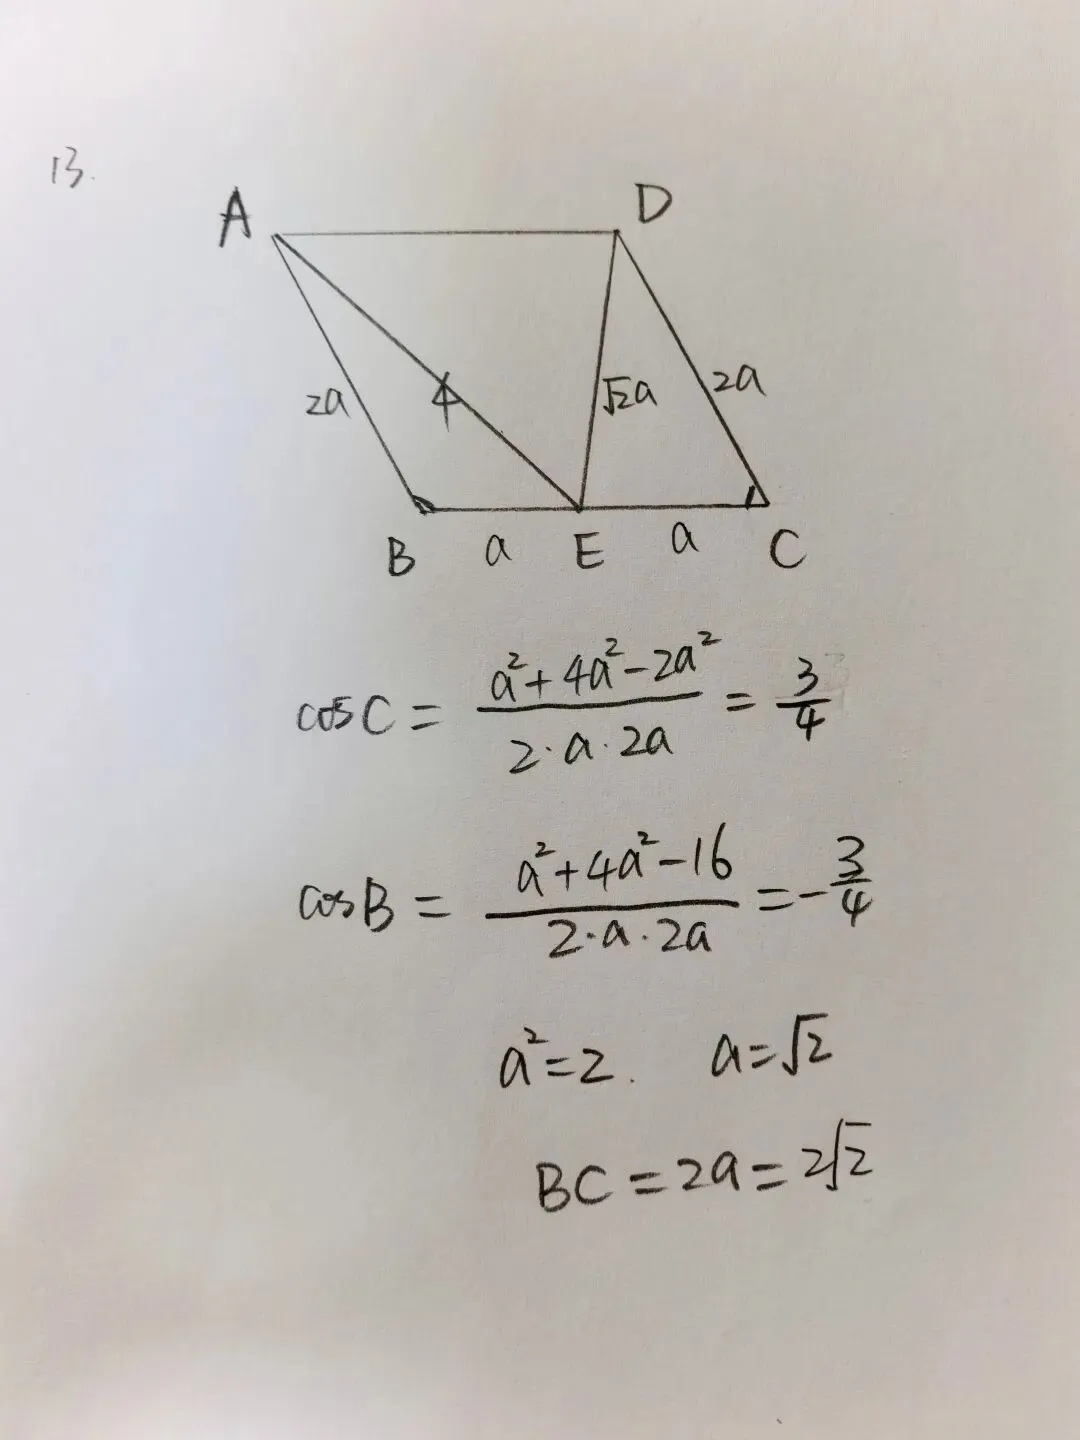 13.
A D
2a 4 √2a 2a
B a E a C
cosC = (a²+4a²-2a²)/(2·a·2a) = 3/4
cosB = (a²+4a²-16)/(2·a·2a) = -3/4
a²=2. a=√2
BC=2a=2√2